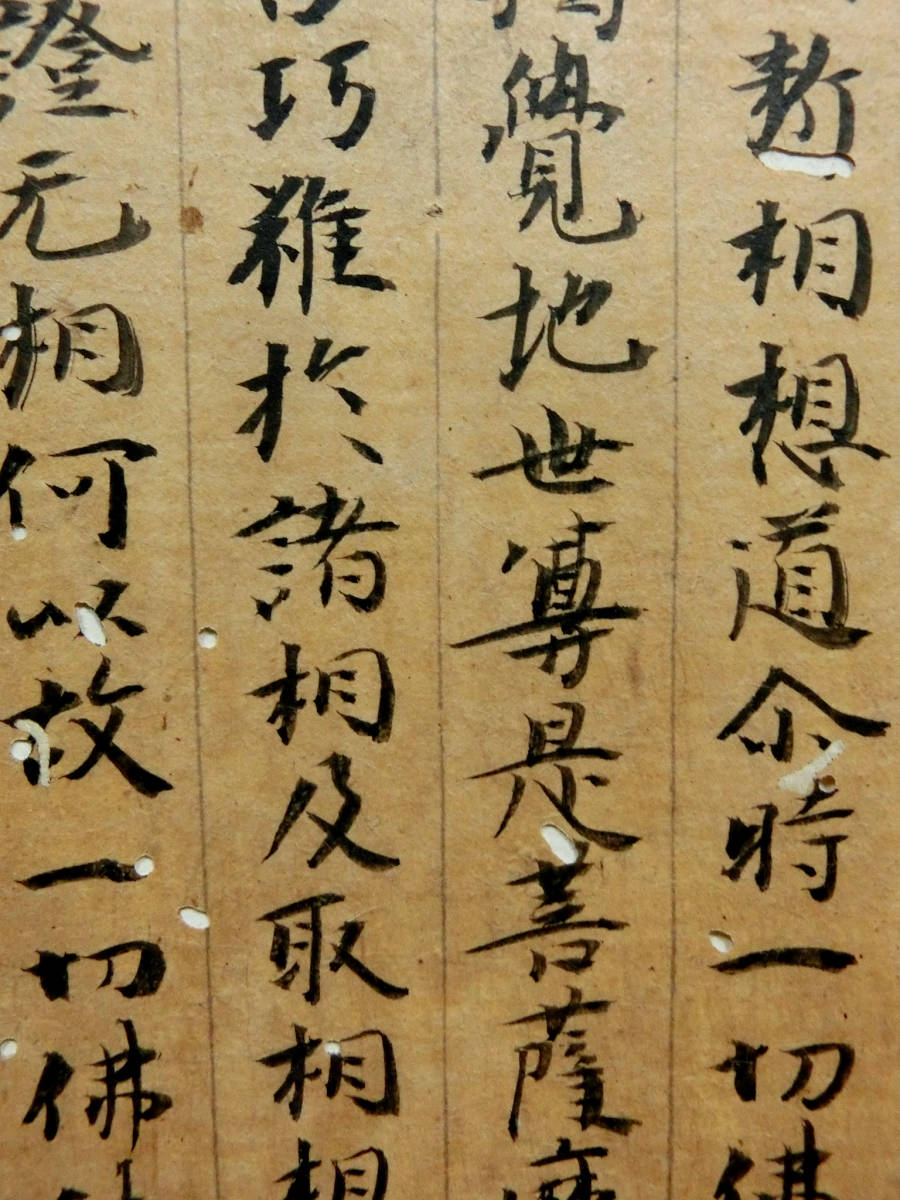 断相想道尒時一切佛
獨覺地世尊是菩薩摩
巧雖於諸相及取相相
證无相何以故一切佛